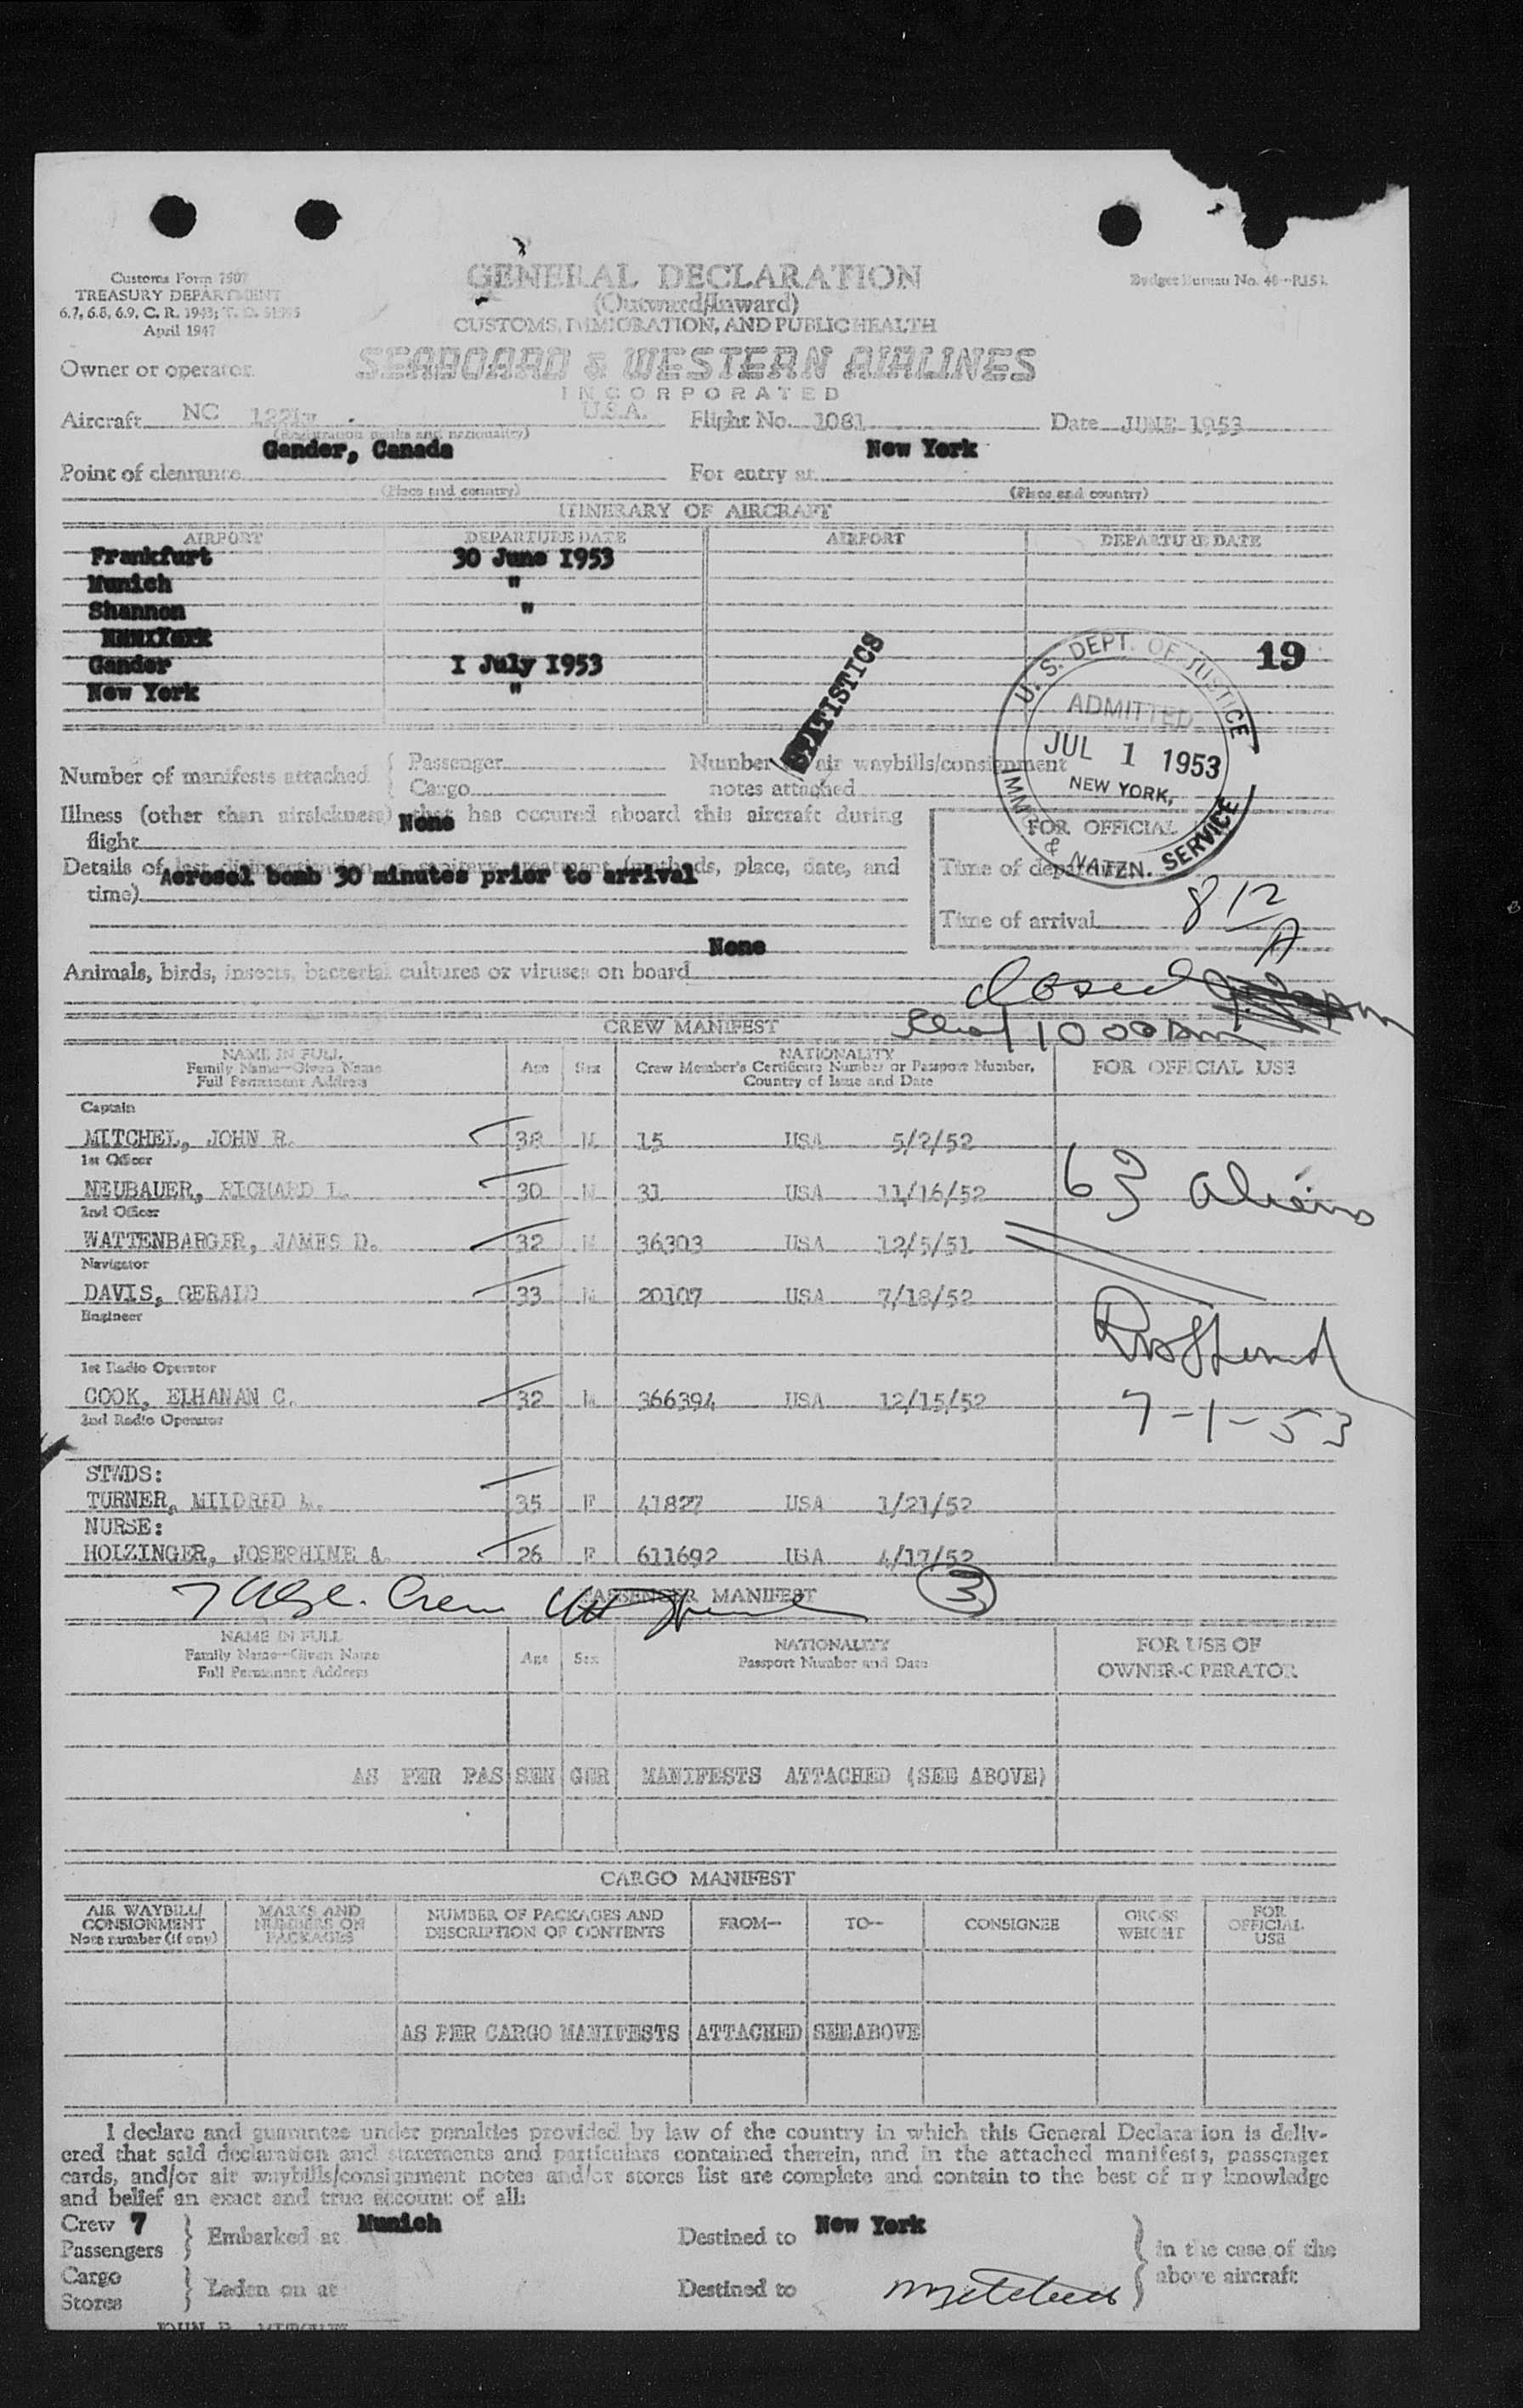 Customs Form 7507
TREASURY DEPARTMENT
6.7, 6.8, 6.9, C. R. 1943; T. D.
April 1947
GENERAL DECLARATION
(Outward/Inward)
CUSTOMS, IMMIGRATION, AND PUBLIC HEALTH
Budget Bureau No. 48-R151.
Owner or operator
SEABOARD & WESTERN AIRLINES
INCORPORATED
Aircraft NC U.S.A. Flight No. 1081 Date JUNE 1953
(Registration marks and nationality)
Gander, Canada New York
Point of clearance For entry at
(Place and country) (Place and country)
ITINERARY OF AIRCRAFT
AIRPORT DEPARTURE DATE AIRPORT DEPARTURE DATE
Frankfurt 30 June 1953
Munich "
Shannon "
Gander 1 July 1953
New York "
19
STATISTICS
U. S. DEPT. OF JUSTICE
ADMITTED
JUL 1 1953
NEW YORK,
IMMG. & NATZN. SERVICE
Number of manifests attached { Passenger Number air waybills/consignment
Cargo notes attached
Illness (other than airsickness) that has occured aboard this aircraft during
flight None
Details of last disinsectization or sanitary treatment (methods, place, date, and
time) Aerosol bomb 30 minutes prior to arrival
FOR OFFICIAL
Time of departure
Time of arrival 8 12 A
None
Animals, birds, insects, bacterial cultures or viruses on board
1000 am
CREW MANIFEST
NAME IN FULL Age Sex NATIONALITY FOR OFFICIAL USE
Family Name—Given Name Crew Member's Certificate Number or Passport Number,
Full Permanent Address Country of Issue and Date
Captain
MITCHEL, JOHN R. 38 M 15 USA 5/2/52
1st Officer
NEUBAUER, RICHARD L. 30 M 31 USA 11/16/52
63 aliens
2nd Officer
WATTENBARGER, JAMES D. 32 M 36303 USA 12/5/51
Navigator
DAVIS, GERALD 33 M 20107 USA 7/18/52
Engineer
1st Radio Operator
COOK, ELHANAN C. 32 M 366394 USA 12/15/52
7-1-53
2nd Radio Operator
STWDS:
TURNER, MILDRED A. 35 F 41827 USA 1/21/52
NURSE:
HOLZINGER, JOSEPHINE A. 26 F 611692 USA 4/17/52
PASSENGER MANIFEST
7 Crew 3
NAME IN FULL Age Sex NATIONALITY FOR USE OF
Family Name—Given Name Passport Number and Date OWNER-OPERATOR
Full Permanent Address
AS PER PASSENGER MANIFESTS ATTACHED (SEE ABOVE)
CARGO MANIFEST
AIR WAYBILL/ MARKS AND NUMBER OF PACKAGES AND FROM— TO— CONSIGNEE GROSS FOR
CONSIGNMENT NUMBERS ON DESCRIPTION OF CONTENTS WEIGHT OFFICIAL
Note number (if any) PACKAGES USE
AS PER CARGO MANIFESTS ATTACHED SEE ABOVE
I declare and guarantee under penalties provided by law of the country in which this General Declaration is deliv-
ered that said declaration and statements and particulars contained therein, and in the attached manifests, passenger
cards, and/or air waybills/consignment notes and/or stores list are complete and contain to the best of my knowledge
and belief an exact and true account of all:
Crew 7 } Embarked at Munich Destined to New York } in the case of the
Passengers
Cargo } Laden on at Destined to above aircraft
Stores
JOHN R. MITCHEL